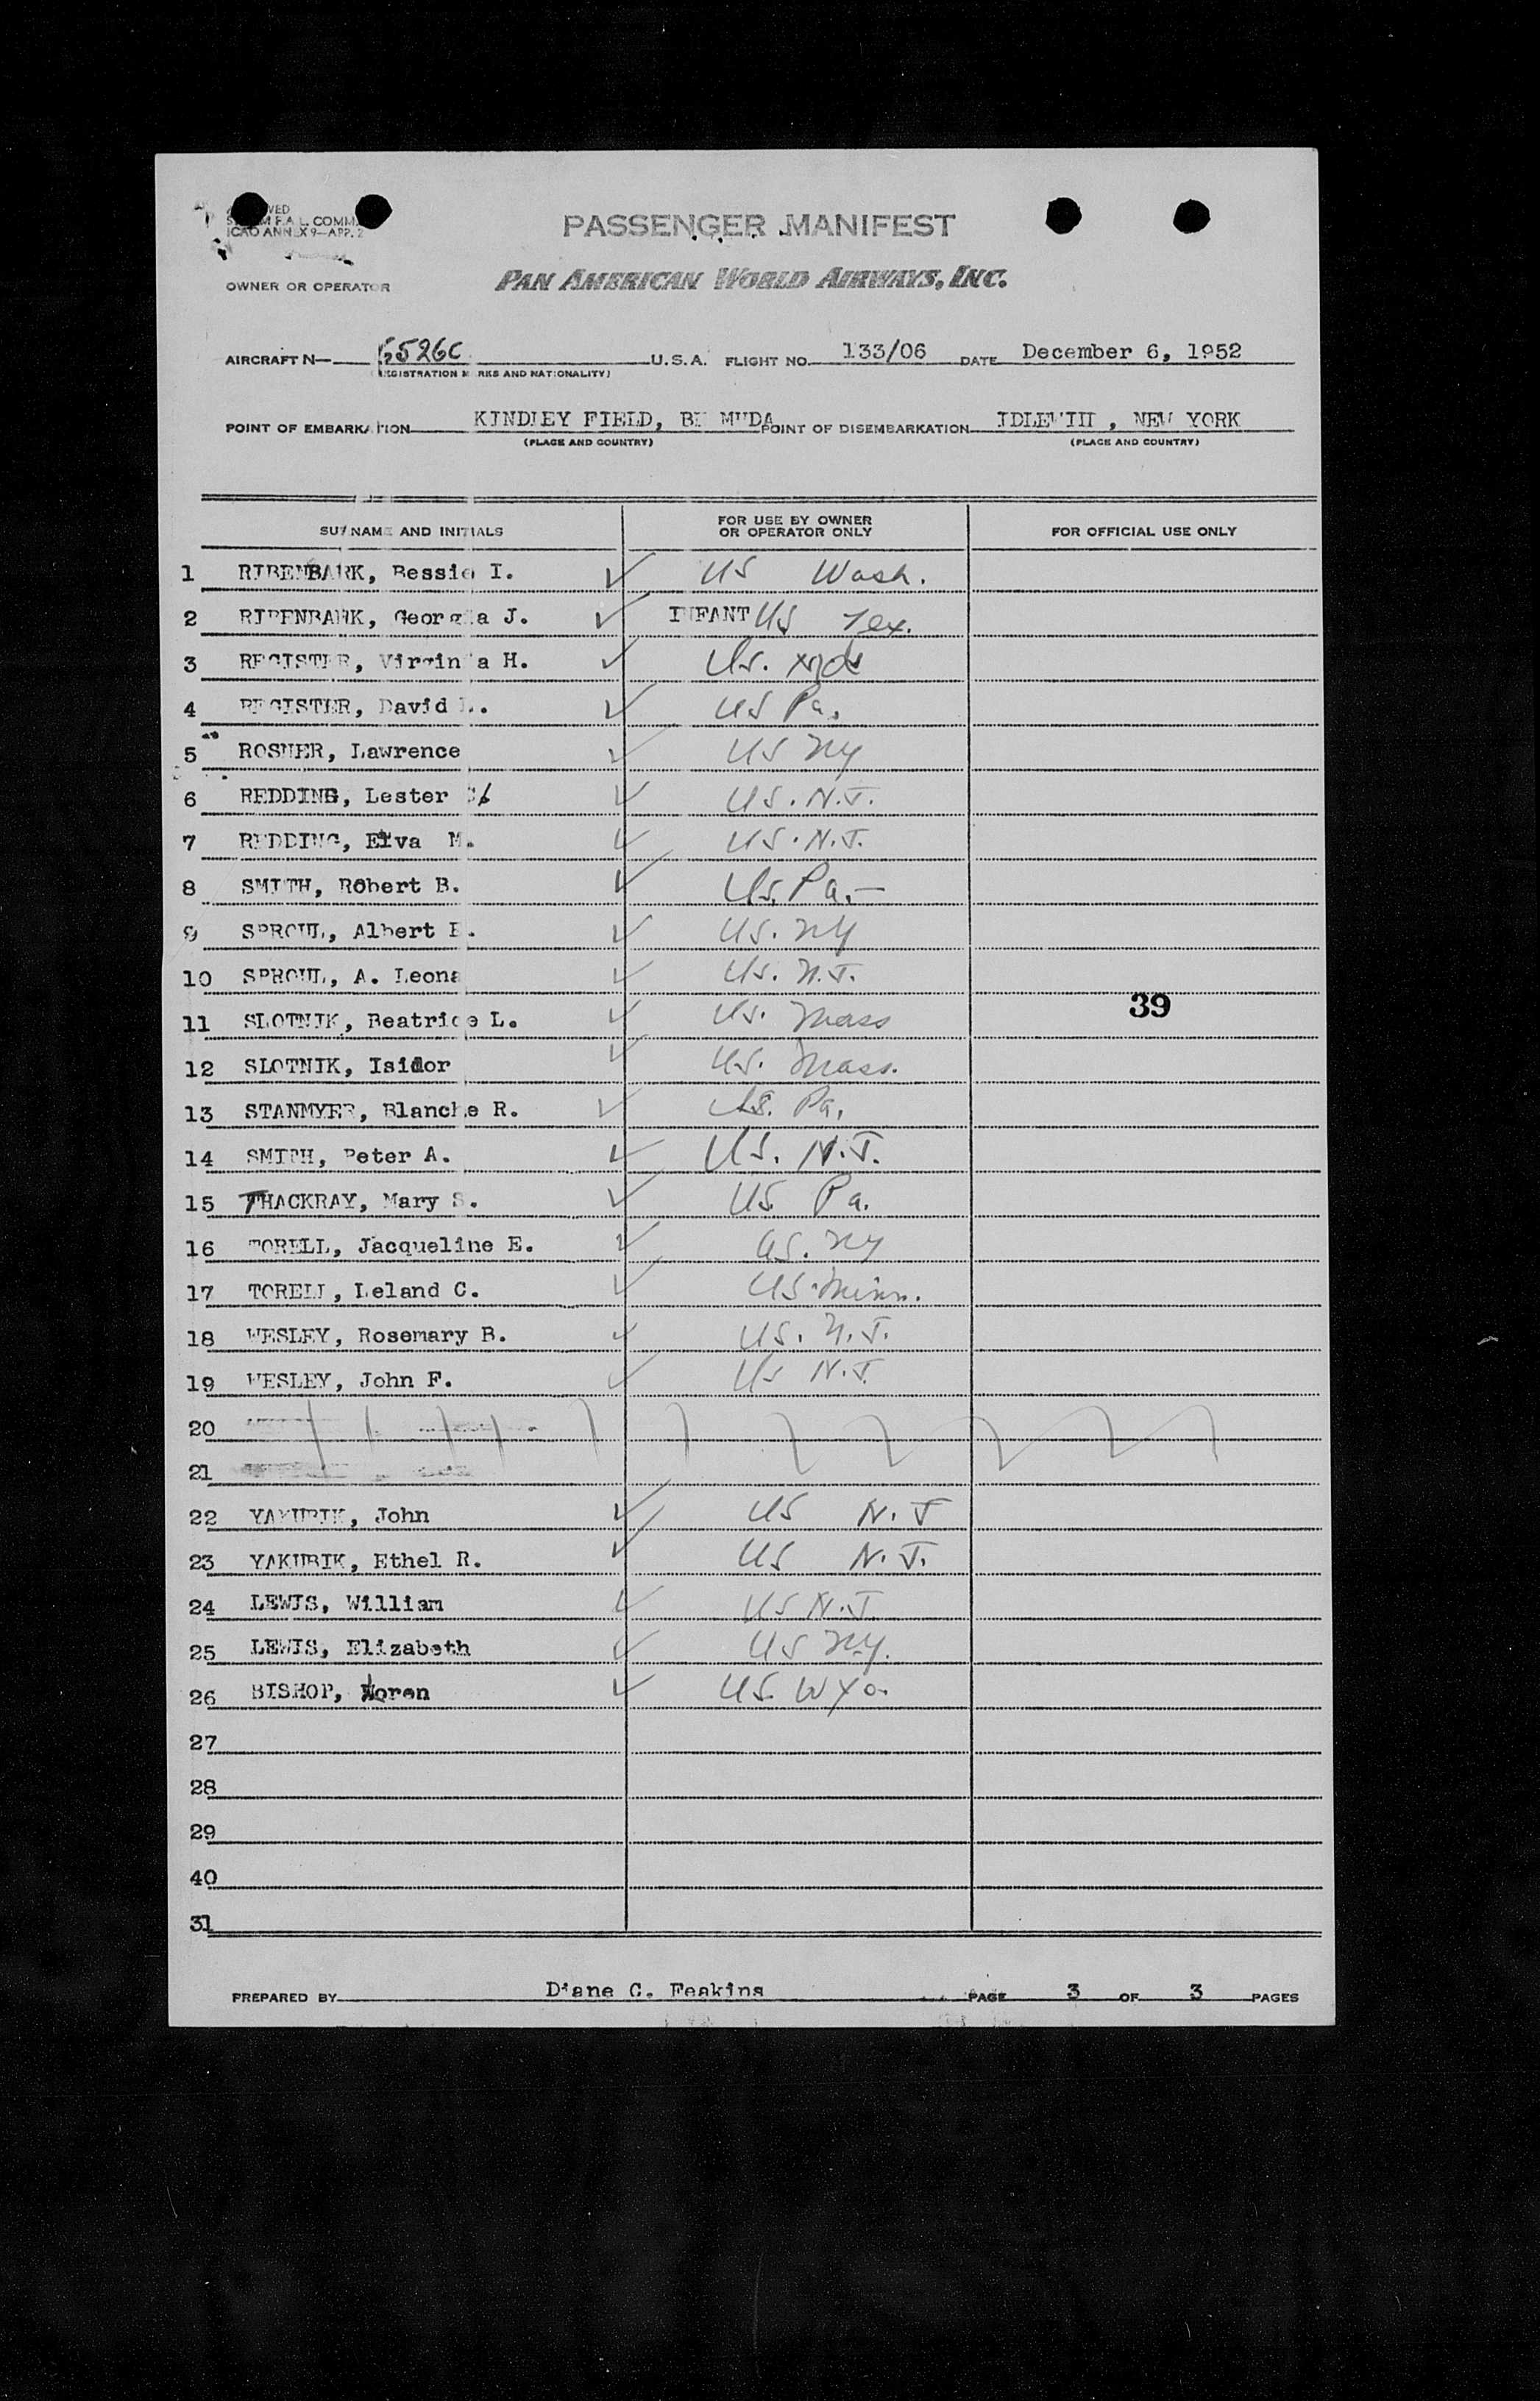 PASSENGER MANIFEST
F.A.L. COMM.
ICAO ANNEX 9—APP. 2
OWNER OR OPERATOR PAN AMERICAN WORLD AIRWAYS, INC.
AIRCRAFT N— 6526C U.S.A. FLIGHT NO. 133/06 DATE December 6, 1952
(REGISTRATION MARKS AND NATIONALITY)
POINT OF EMBARKATION KINDLEY FIELD, BERMUDA POINT OF DISEMBARKATION IDLEWILD, NEW YORK
(PLACE AND COUNTRY) (PLACE AND COUNTRY)
SURNAME AND INITIALS FOR USE BY OWNER OR OPERATOR ONLY FOR OFFICIAL USE ONLY
1 RIBENBARK, Bessie I. ✓ US Wash.
2 RIBENBARK, Georgia J. ✓ INFANT US Tex.
3 REGISTER, Virginia H. ✓ US.
4 REGISTER, David L. ✓ US Pa.
5 ROSNER, Lawrence ✓ US NY
6 REDDING, Lester ✓ US. N.J.
7 REDDING, Elva M. ✓ US. N.J.
8 SMITH, Robert B. ✓ US. Pa.—
9 SPROUL, Albert E. ✓ US. NY
10 SPROUL, A. Leona ✓ US. N.J.
11 SLOTNIK, Beatrice L. ✓ US. Mass
39
12 SLOTNIK, Isidor ✓ US. Mass.
13 STANMYER, Blanche R. ✓ US. Pa.
14 SMITH, Peter A. ✓ US. N.J.
15 THACKRAY, Mary S. ✓ US Pa.
16 TORELL, Jacqueline E. ✓ US. NY
17 TORELL, Leland C. ✓ US. Minn.
18 WESLEY, Rosemary B. ✓ US. N.J.
19 WESLEY, John F. ✓ US N.J.
20
21
22 YAKUBIK, John ✓ US N.J
23 YAKUBIK, Ethel R. ✓ US N.J.
24 LEWIS, William ✓ US N.J.
25 LEWIS, Elizabeth ✓ US N.Y.
26 BISHOP, Loren ✓ US Wyo.
27
28
29
40
31
PREPARED BY Diane C. Feakins PAGE 3 OF 3 PAGES